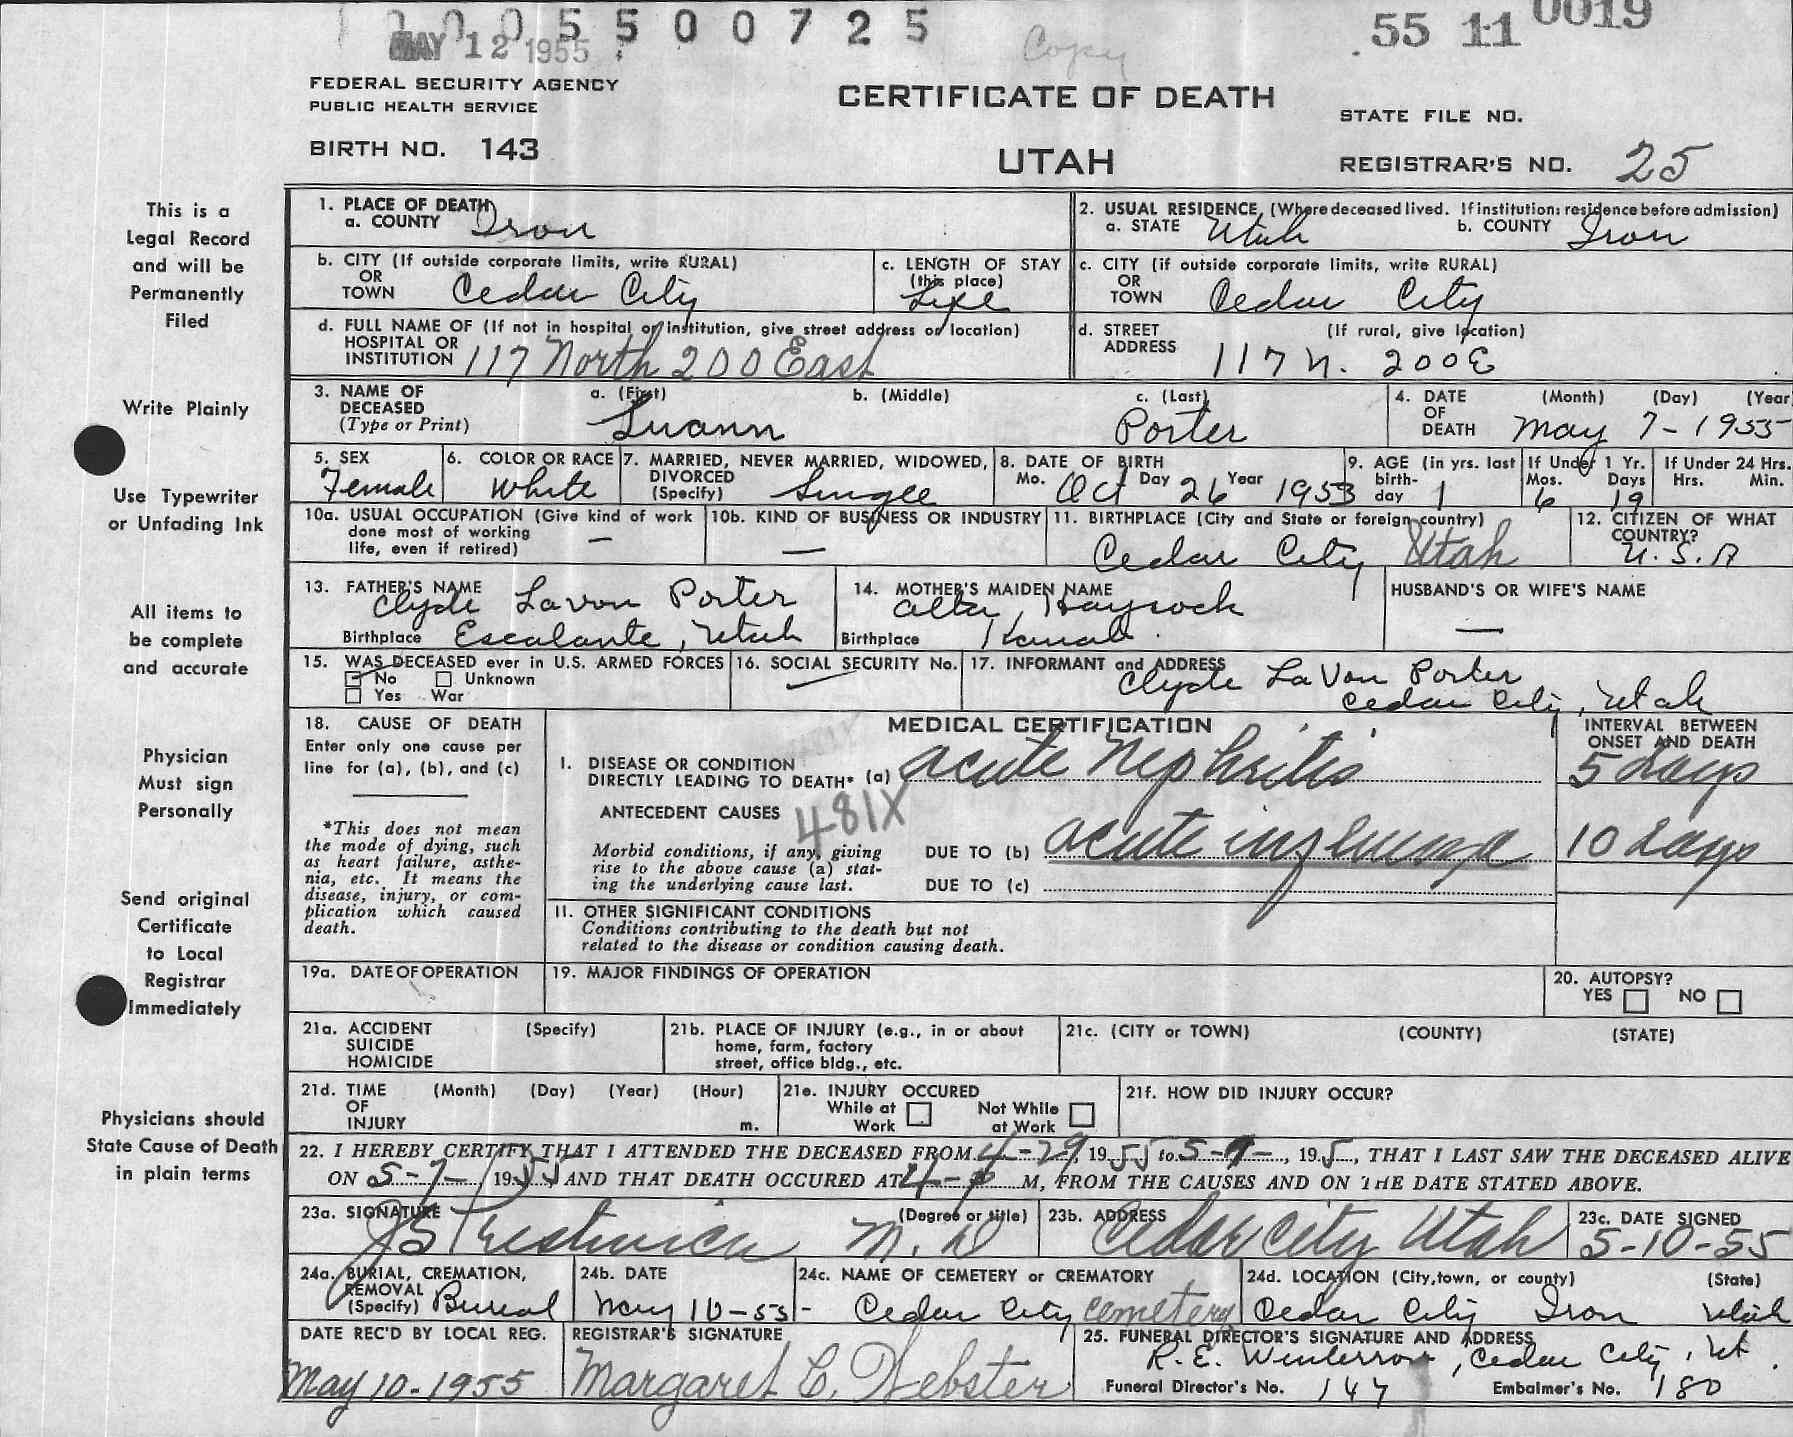 0 0 0 5 5 0 0 7 2 5
MAY 12 1955
Copy
55 11 0019
FEDERAL SECURITY AGENCY
PUBLIC HEALTH SERVICE
CERTIFICATE OF DEATH
STATE FILE NO.
BIRTH NO. 143
UTAH
REGISTRAR'S NO. 25
This is a
Legal Record
and will be
Permanently
Filed
Write Plainly
Use Typewriter
or Unfading Ink
All items to
be complete
and accurate
Physician
Must sign
Personally
Send original
Certificate
to Local
Registrar
Immediately
Physicians should
State Cause of Death
in plain terms
1. PLACE OF DEATH
a. COUNTY Iron
2. USUAL RESIDENCE (Where deceased lived. If institution: residence before admission)
a. STATE Utah b. COUNTY Iron
b. CITY (If outside corporate limits, write RURAL)
OR
TOWN Cedar City
c. LENGTH OF STAY
(this place)
Life
c. CITY (if outside corporate limits, write RURAL)
OR
TOWN Cedar City
d. FULL NAME OF (If not in hospital or institution, give street address or location)
HOSPITAL OR
INSTITUTION 117 North 200 East
d. STREET (If rural, give location)
ADDRESS 117 N. 200 E
3. NAME OF a. (First) b. (Middle) c. (Last)
DECEASED
(Type or Print) Luann Porter
4. DATE (Month) (Day) (Year
OF
DEATH May 7 - 1955
5. SEX
Female
6. COLOR OR RACE
White
7. MARRIED, NEVER MARRIED, WIDOWED,
DIVORCED
(Specify) Single
8. DATE OF BIRTH
Mo. Oct Day 26 Year 1953
9. AGE (in yrs. last
birth-
day 1
If Under 1 Yr.
Mos. Days
6 19
If Under 24 Hrs.
Hrs. Min.
10a. USUAL OCCUPATION (Give kind of work
done most of working
life, even if retired) —
10b. KIND OF BUSINESS OR INDUSTRY
—
11. BIRTHPLACE (City and State or foreign country)
Cedar City Utah
12. CITIZEN OF WHAT
COUNTRY?
U. S. A
13. FATHER'S NAME
Clyde Lavon Porter
Birthplace Escalante, Utah
14. MOTHER'S MAIDEN NAME
Alta Haycock
Birthplace Kanab.
HUSBAND'S OR WIFE'S NAME
—
15. WAS DECEASED ever in U.S. ARMED FORCES
No Unknown
Yes War
16. SOCIAL SECURITY No.
—
17. INFORMANT and ADDRESS
Clyde LaVon Porter
Cedar City, Utah
18. CAUSE OF DEATH
Enter only one cause per
line for (a), (b), and (c)
*This does not mean
the mode of dying, such
as heart failure, asthe-
nia, etc. It means the
disease, injury, or com-
plication which caused
death.
MEDICAL CERTIFICATION
INTERVAL BETWEEN
ONSET AND DEATH
I. DISEASE OR CONDITION
DIRECTLY LEADING TO DEATH* (a) acute nephritis 5 days
ANTECEDENT CAUSES
481X
Morbid conditions, if any, giving
rise to the above cause (a) stat-
ing the underlying cause last.
DUE TO (b) acute influenza 10 days
DUE TO (c)
11. OTHER SIGNIFICANT CONDITIONS
Conditions contributing to the death but not
related to the disease or condition causing death.
19a. DATE OF OPERATION
19. MAJOR FINDINGS OF OPERATION
20. AUTOPSY?
YES NO
21a. ACCIDENT (Specify)
SUICIDE
HOMICIDE
21b. PLACE OF INJURY (e.g., in or about
home, farm, factory
street, office bldg., etc.
21c. (CITY or TOWN) (COUNTY) (STATE)
21d. TIME (Month) (Day) (Year) (Hour)
OF
INJURY m.
21e. INJURY OCCURED
While at Not While
Work at Work
21f. HOW DID INJURY OCCUR?
22. I HEREBY CERTIFY THAT I ATTENDED THE DECEASED FROM 4-29, 1955 to 5-7-, 195, THAT I LAST SAW THE DECEASED ALIVE
ON 5-7-, 1955, AND THAT DEATH OCCURED AT 4-P M, FROM THE CAUSES AND ON THE DATE STATED ABOVE.
23a. SIGNATURE (Degree or title)
J S Prestwich M. D
23b. ADDRESS
Cedar City Utah
23c. DATE SIGNED
5-10-55
24a. BURIAL, CREMATION,
REMOVAL
(Specify) Burial
24b. DATE
May 10-55-
24c. NAME OF CEMETERY or CREMATORY
Cedar City Cemetery
24d. LOCATION (City, town, or county) (State)
Cedar City Iron Utah
DATE REC'D BY LOCAL REG.
May 10-1955
REGISTRAR'S SIGNATURE
Margaret C. Webster
25. FUNERAL DIRECTOR'S SIGNATURE AND ADDRESS
R. E. Winterrose, Cedar City, Ut.
Funeral Director's No. 147 Embalmer's No. 180